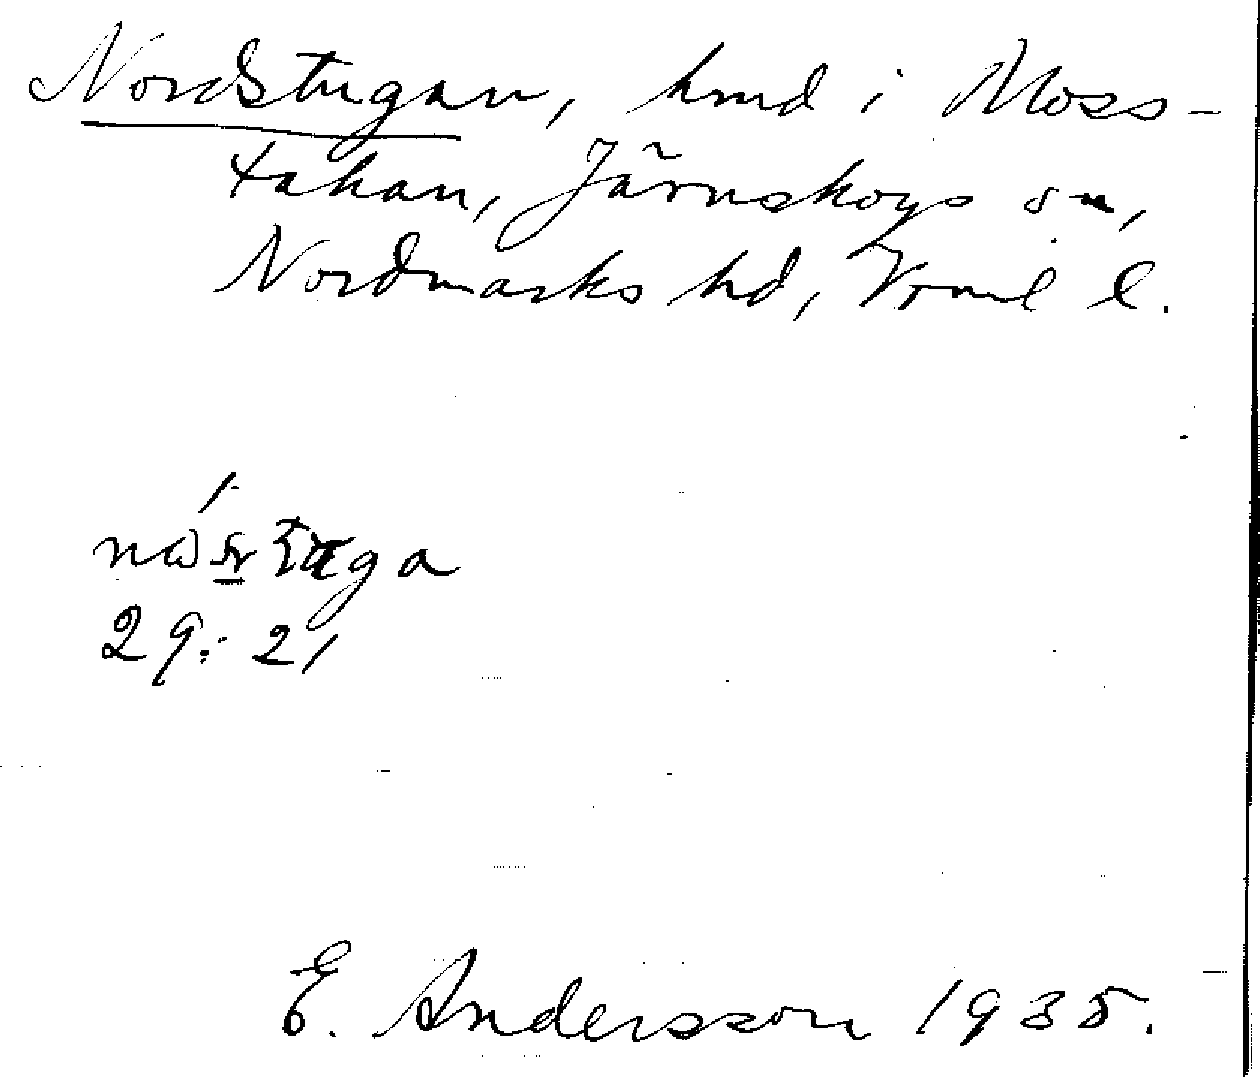 Nordstugan, hmd i Moss-
takan, Järnskogs sn,
Nordmarks hd, Vrml l.
29: 21
E. Andersson 1935.